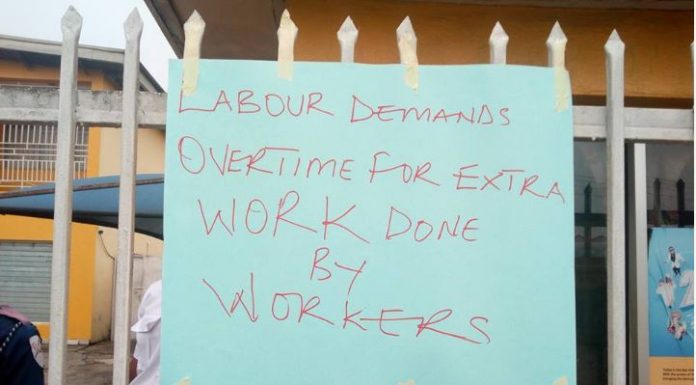 LABOUR DEMANDS
OVERTIME FOR EXTRA
WORK DONE
BY
WORKERS